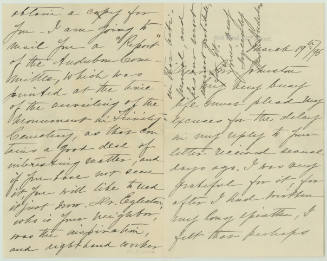 obtain a copy for
you - I am going to
mail you a "Report
of the Audubon Com-
mittee, which was
printed at the time
of the unveiling of the
Monument in Trinity
Cemetery, as this con-
tains a good deal of
interesting matter, and
if you have not seen
it you will like to read
it just now. Mr. Egleston
who is your neighbor,
was the inspiration,
and right hand worker
March 19th/98
Dear Mr. Johnston
my very busy
life must plead my
excuses for the delay
in my reply to your
letter received several
days ago. I was very
grateful for it, for
after I had written
my long epistle, I
felt that perhaps